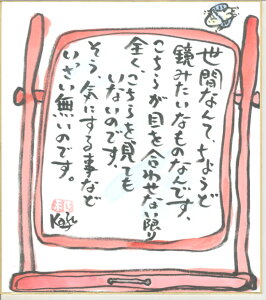 世間なんて、ちょうど
鏡みたいなものなんです、
こちらが目を合わせない限り
全く、こちらを見ても
いないのです。
そう、気にする事など
いっさい無いのです。